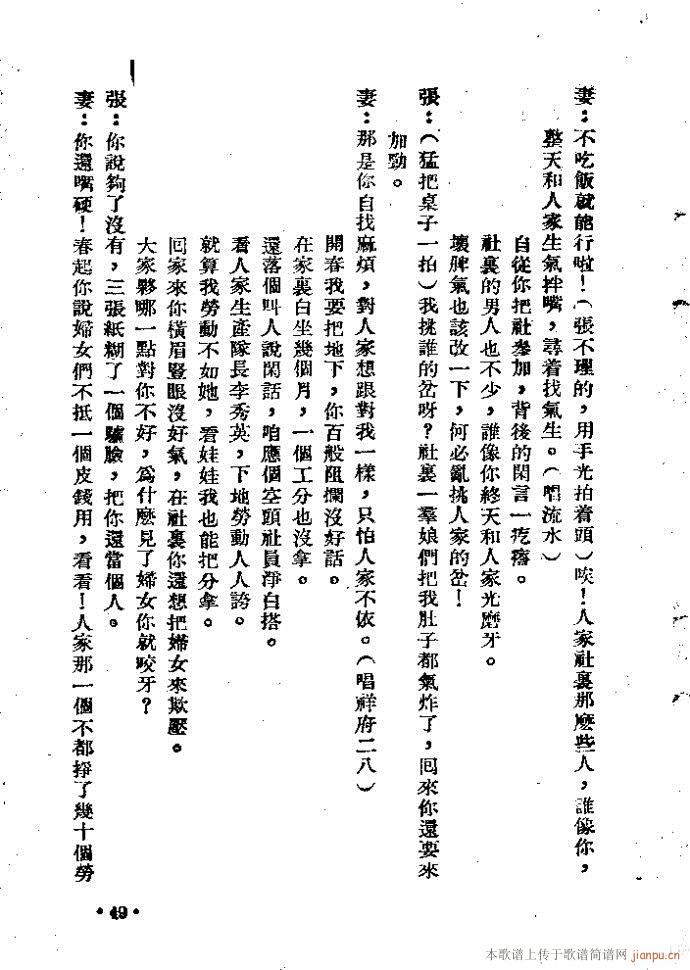 妻：不吃飯就能行啦！（張不理的，用手光拍着頭）唉！人家社裏那麽些人，誰像你，
整天和人家生氣拌嘴，尋着找氣生。（唱流水）
自從你把社參加，背後的閑言一疙瘩。
社裏的男人也不少，誰像你終天和人家光磨牙。
壞脾氣也該改一下，何必亂挑人家的岔！
張：（猛把桌子一拍）我挑誰的岔呀？社裏一羣娘們把我肚子都氣炸了，囘來你還要來
加勁。
妻：那是你自找麻煩，對人家想跟對我一樣，只怕人家不依。（唱祥府二八）
開春我要把地下，你百般阻攔沒好話。
在家裏白坐幾個月，一個工分也沒拿。
還落個叫人說閑話，咱應個空頭社員淨白搭。
看人家生產隊長李秀英，下地勞動人人誇。
就算我勞動不如她，看娃娃我也能把分拿。
囘家來你橫眉豎眼沒好氣，在社裏你還想把婦女來欺壓。
大家夥哪一點對你不好，爲什麽見了婦女你就咬牙？
張：你說夠了沒有，三張紙糊了一個驢臉，把你還當個人。
妻：你還嘴硬！春起你說婦女們不抵一個皮錢用，看看！人家那一個不都掙了幾十個勞
•49•
本歌谱上传于歌谱简谱网
jianpu.cn